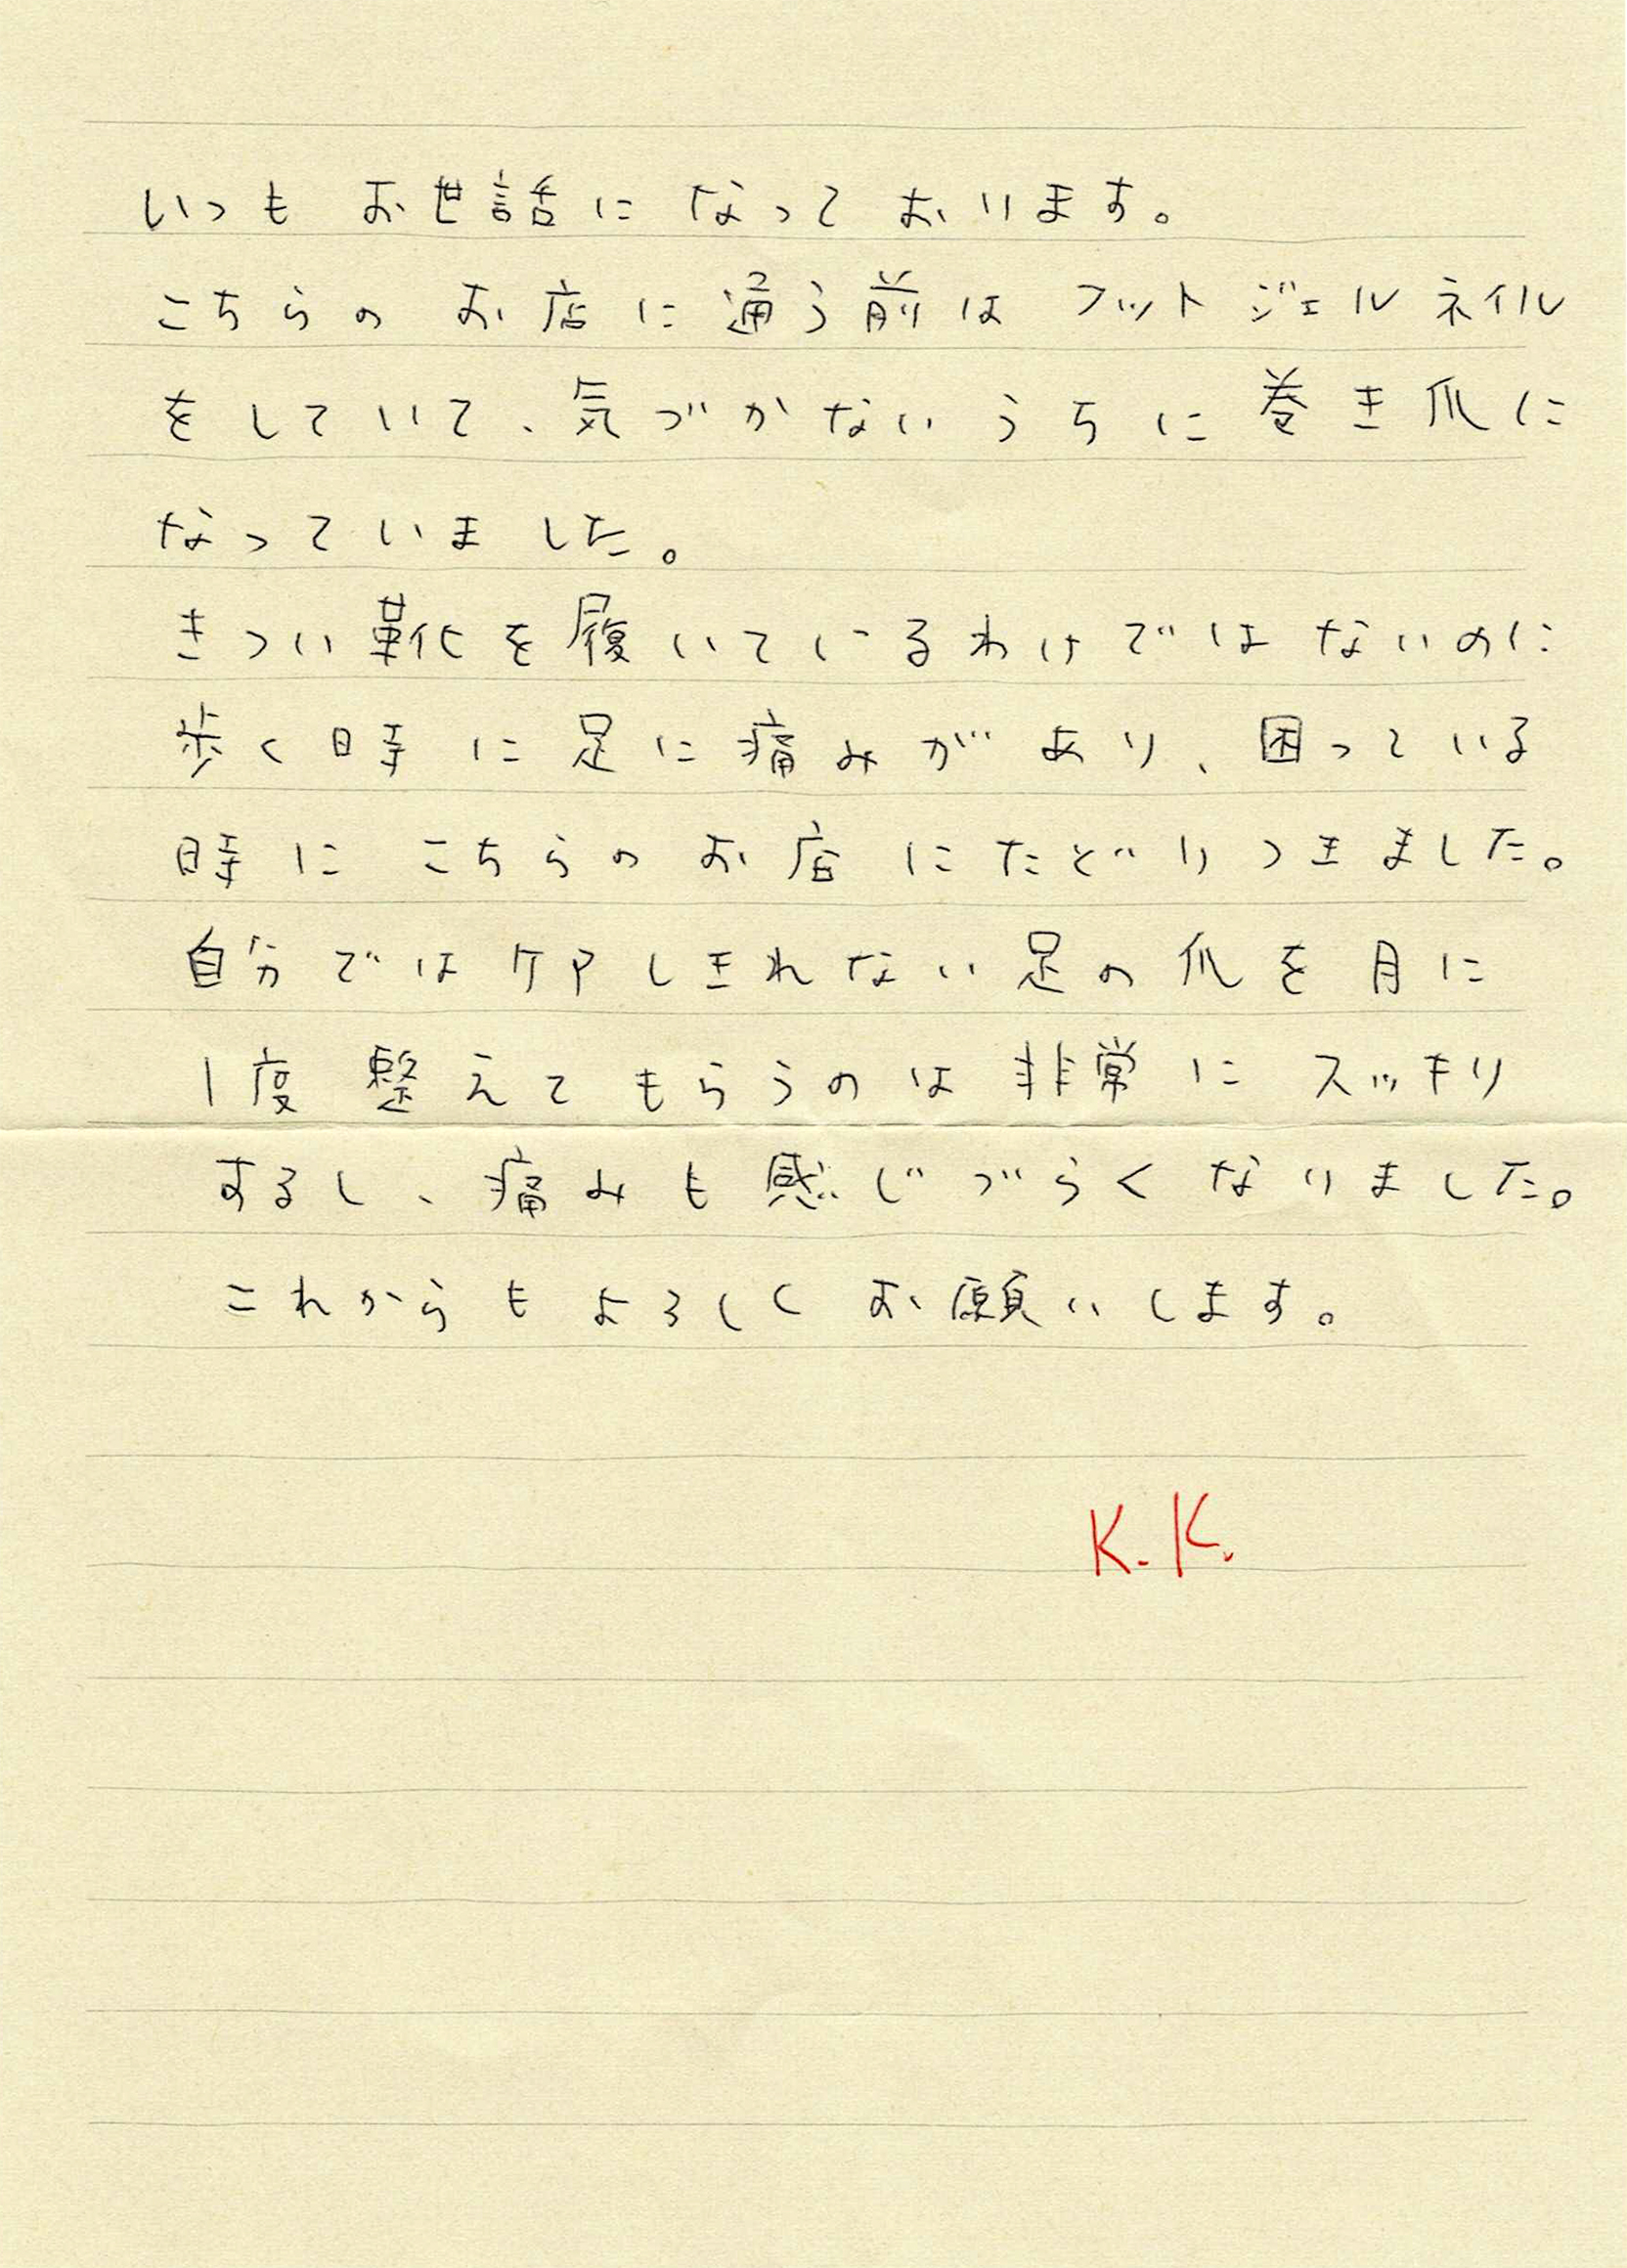 いつも お世話になって おります。
こちらの お店に通う前は フットジェルネイル
をしていて、気づかないうちに巻き爪に
なっていました。
きつい靴を履いているわけではないのに
歩く時に足に痛みがあり、困っている
時に こちらの お店にたどりつきました。
自分ではケアしきれない足の爪を月に
1度 整えてもらうのは非常にスッキリ
するし、痛みも感じづらくなりました。
これからもよろしく お願いします。
K.K.